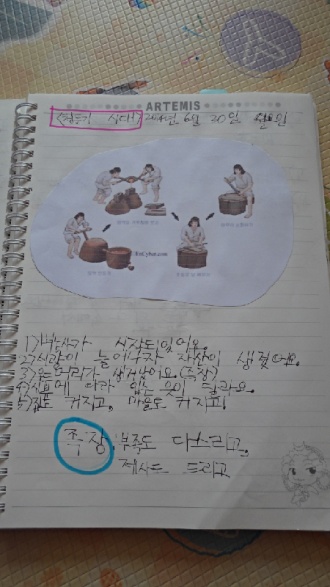 ARTEMIS
<청동기 시대> 2024년 6월 20일 월요일
EnCyber.com
1) 농사가 시작되었어요.
2) 식량이 늘어나자 재산이 생겼어요.
3) 우두머리가 생겨났어요.(족장)
4) 신분에 따라 입는 옷이 달라요.
5) 집도 커지고, 마을도 커지고!
족장 부족도 다스리고,
제사도 드리고